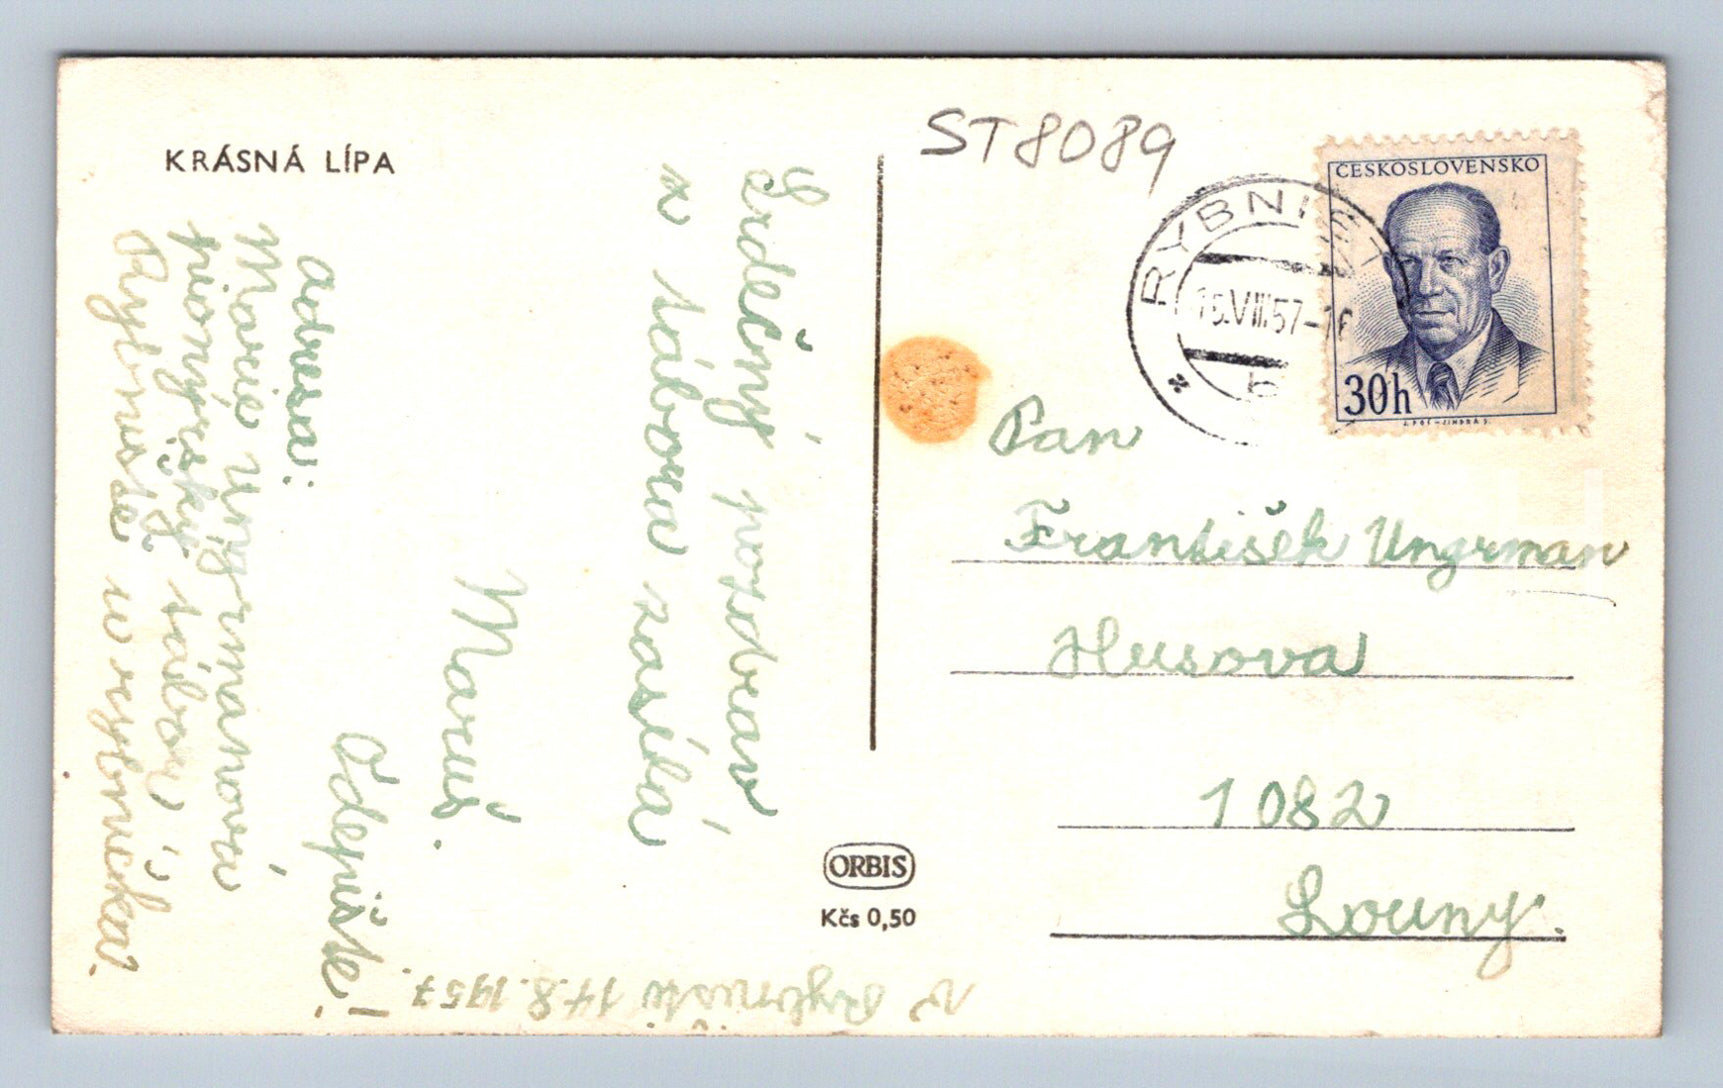 KRÁSNÁ LÍPA
Srdečný pozdrav
z tábora zasílá
Maruš.
Odepište!
Adresa:
Marie Ungrmanová
pionýrský tábor
Rybniště u rybníka.
v Rybništi 14.8.1957.
ORBIS
Kčs 0,50
ST8089
ČESKOSLOVENSKO
30h
RYBNIŠTĚ
15.VIII.57-16
b
Pan
František Ungrman
Husova
1082
Louny.